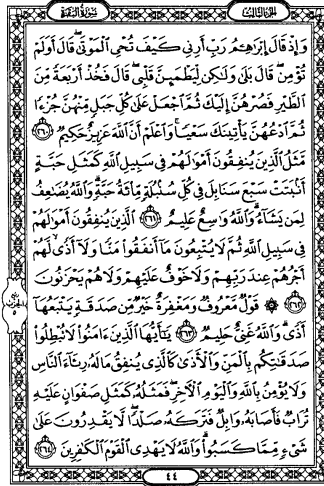 الجزء الثالث سورة البقرة
وَإِذْ قَالَ إِبْرَٰهِـۧمُ رَبِّ أَرِنِى كَيْفَ تُحْىِ ٱلْمَوْتَىٰ ۖ قَالَ أَوَلَمْ
تُؤْمِن ۖ قَالَ بَلَىٰ وَلَـٰكِن لِّيَطْمَئِنَّ قَلْبِى ۖ قَالَ فَخُذْ أَرْبَعَةً مِّنَ
ٱلطَّيْرِ فَصُرْهُنَّ إِلَيْكَ ثُمَّ ٱجْعَلْ عَلَىٰ كُلِّ جَبَلٍ مِّنْهُنَّ جُزْءًا
ثُمَّ ٱدْعُهُنَّ يَأْتِينَكَ سَعْيًا ۚ وَٱعْلَمْ أَنَّ ٱللَّهَ عَزِيزٌ حَكِيمٌ ٢٦٠
مَّثَلُ ٱلَّذِينَ يُنفِقُونَ أَمْوَٰلَهُمْ فِى سَبِيلِ ٱللَّهِ كَمَثَلِ حَبَّةٍ
أَنۢبَتَتْ سَبْعَ سَنَابِلَ فِى كُلِّ سُنۢبُلَةٍ مِّا۟ئَةُ حَبَّةٍ ۗ وَٱللَّهُ يُضَـٰعِفُ
لِمَن يَشَآءُ ۗ وَٱللَّهُ وَٰسِعٌ عَلِيمٌ ٢٦١ ٱلَّذِينَ يُنفِقُونَ أَمْوَٰلَهُمْ
فِى سَبِيلِ ٱللَّهِ ثُمَّ لَا يُتْبِعُونَ مَآ أَنفَقُوا۟ مَنًّا وَلَآ أَذًى ۙ لَّهُمْ
أَجْرُهُمْ عِندَ رَبِّهِمْ وَلَا خَوْفٌ عَلَيْهِمْ وَلَا هُمْ يَحْزَنُونَ
٢٦٢ ۞ قَوْلٌ مَّعْرُوفٌ وَمَغْفِرَةٌ خَيْرٌ مِّن صَدَقَةٍ يَتْبَعُهَآ
أَذًى ۗ وَٱللَّهُ غَنِىٌّ حَلِيمٌ ٢٦٣ يَـٰٓأَيُّهَا ٱلَّذِينَ ءَامَنُوا۟ لَا تُبْطِلُوا۟
صَدَقَـٰتِكُم بِٱلْمَنِّ وَٱلْأَذَىٰ كَٱلَّذِى يُنفِقُ مَالَهُۥ رِئَآءَ ٱلنَّاسِ
وَلَا يُؤْمِنُ بِٱللَّهِ وَٱلْيَوْمِ ٱلْـَٔاخِرِ ۖ فَمَثَلُهُۥ كَمَثَلِ صَفْوَانٍ عَلَيْهِ
تُرَابٌ فَأَصَابَهُۥ وَابِلٌ فَتَرَكَهُۥ صَلْدًا ۖ لَّا يَقْدِرُونَ عَلَىٰ
شَىْءٍ مِّمَّا كَسَبُوا۟ ۗ وَٱللَّهُ لَا يَهْدِى ٱلْقَوْمَ ٱلْكَـٰفِرِينَ ٢٦٤
٤٤